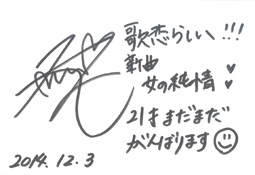 歌恋らしい!!!
新曲
女の純情
21才まだまだ
がんばります
2014.12.3